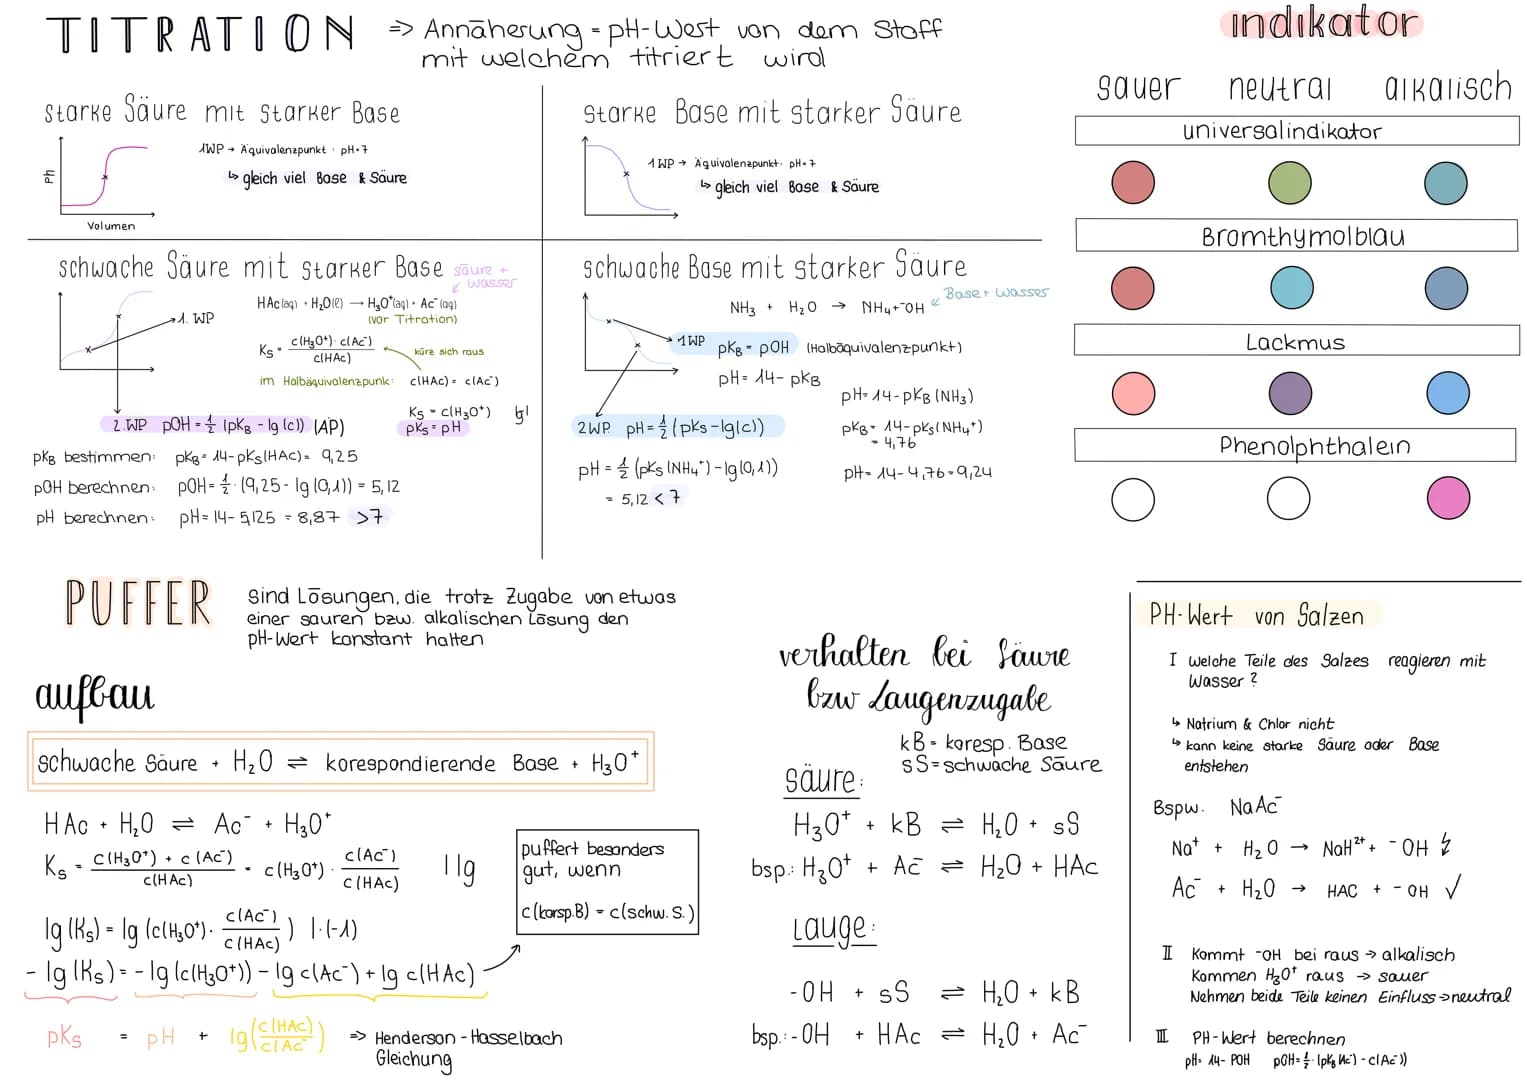 TITRATION
=> Annäherung = pH-West von dem Stoff
mit welchem titriert wird
starke Säure mit starker Base
Ph
Volumen
1WP → Äquivalenzpunkt · pH=7
↳ gleich viel Base & Säure
starke Base mit starker Säure
1WP → Äquivalenzpunkt · pH=7
↳ gleich viel Base & Säure
schwache Säure mit starker Base
säure +
wasser
1. WP
HAc(aq) + H₂O(l) → H₃O⁺(aq) + Ac⁻(aq)
(vor Titration)
Ks = c(H₃O⁺) · c(Ac⁻) / c(HAc)
kürz sich raus
im Halbäquivalenzpunk: c(HAc) = c(Ac⁻)
Ks = c(H₃O⁺) lg!
pKs = pH
2.WP pOH = ½ (pKB - lg(c)) (ÄP)
pKB bestimmen: pKB = 14-pKs(HAc) = 9,25
pOH berechnen: pOH = ½ · (9,25 - lg(0,1)) = 5,12
pH berechnen: pH = 14-5,125 = 8,87 >7
schwache Base mit starker Säure
NH₃ + H₂O → NH₄+⁻OH
Base+ Wasser
1WP pKB = pOH (Halbäquivalenzpunkt)
pH = 14- pKB
2WP. pH = ½ (pKs-lg(c))
pH = ½ (pKs(NH₄⁺)-lg(0,1))
= 5,12 < 7
pH = 14-pKB(NH₃)
pKB = 14-pKs(NH₄⁺)
= 4,76
pH = 14-4,76=9,24
indikator
sauer neutral alkalisch
universalindikator
Bromthymolblau
Lackmus
Phenolphthalein
PUFFER
sind Lösungen, die trotz Zugabe von etwas
einer sauren bzw. alkalischen Lösung den
pH-Wert konstant halten
aufbau
schwache Säure + H₂O ⇌ korespondierende Base + H₃O⁺
HAc + H₂O ⇌ Ac⁻ + H₃O⁺
Ks = c(H₃O⁺) + c(Ac⁻) / c(HAc) = c(H₃O⁺) · c(Ac⁻) / c(HAc) | lg
lg(Ks) = lg(c(H₃O⁺) · c(Ac⁻) / c(HAc)) | · (-1)
- lg(Ks) = - lg(c(H₃O⁺)) - lg c(Ac⁻) + lg c(HAc)
pKs = pH + lg(c(HAc) / c(Ac⁻)) => Henderson - Hasselbach
Gleichung
puffert besonders
gut, wenn
c(korsp.B) = c(schw. S.)
verhalten bei Säure
bzw Laugenzugabe
kB = koresp. Base
sS = schwache Säure
säure:
H₃O⁺ + kB ⇌ H₂O + sS
bsp.: H₃O⁺ + Ac⁻ ⇌ H₂O + HAc
Lauge:
-OH + sS ⇌ H₂O + kB
bsp.: -OH + HAc ⇌ H₂O + Ac⁻
PH-Wert von Salzen
I welche Teile des Salzes reagieren mit
Wasser?
↳ Natrium & Chlor nicht
↳ kann keine starke Säure oder Base
entstehen
Bspw. NaAc⁻
Na⁺ + H₂O → NaH²⁺ + -OH ↯
Ac⁻ + H₂O → HAC + -OH ✓
II Kommt -OH bei raus → alkalisch
Kommen H₃O⁺ raus → sauer
Nehmen beide Teile keinen Einfluss → neutral
III PH-Wert berechnen
pH = 14- POH pOH = ½ · (pKB(Ac⁻) - c(Ac⁻))